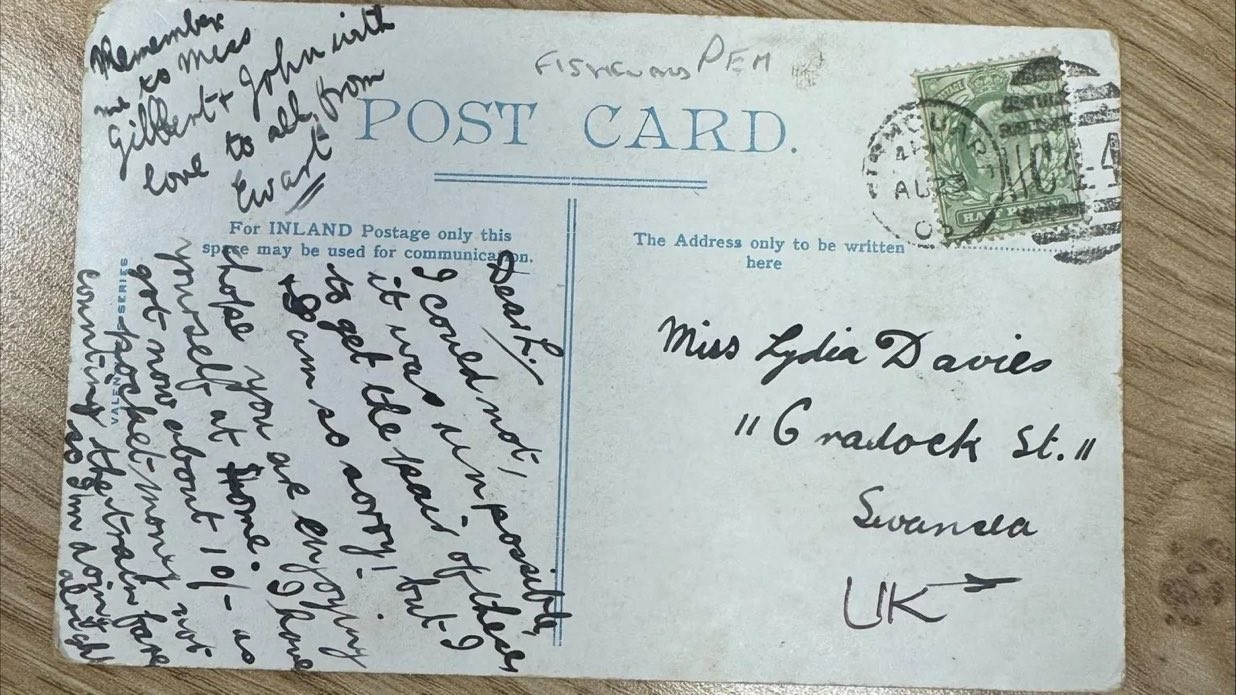 Remember
me to Miss
Gilbert + John with
love to all from
Ewart
PEM
POST CARD.
For INLAND Postage only this
space may be used for communication.
The Address only to be written
here
HALFPENNY
AU 23
Dear L.
I could not,
it was impossible,
to get the pair of these
+ I am so sorry! but I
hope you are enjoying
yourself at Home. I have
got now about 10/- as
pocket-money not
counting the train fare
so I'm doing alright
VALENTINES SERIES
Miss Lydia Davies
"Cradock St."
Swansea
UK